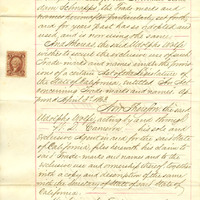 arom Schnapps, the Trade marks and
names hereinafter particularly set forth, and
and for years past has so adopted and
used, and is now using the same;
And Whereas the said Adolpho Wolfe
wishes to secure the exclusive use of such
Trade-marks and names under the provis-
ions of a certain Act of the Legislature of
the State of California, entitled "An Act
concerning Trade-marks and names" Ap-
proved April 3d 1863.
Now Therefore the said
Adolpho Wolfe, acting by and through
his sole and
exclusive Agent in and for the said State
of California, files herewith his claim to
said trade-marks and names and to the
exclusive use and ownership thereof, together
with a copy and description of the same
with the Secretary of State of said State of
California